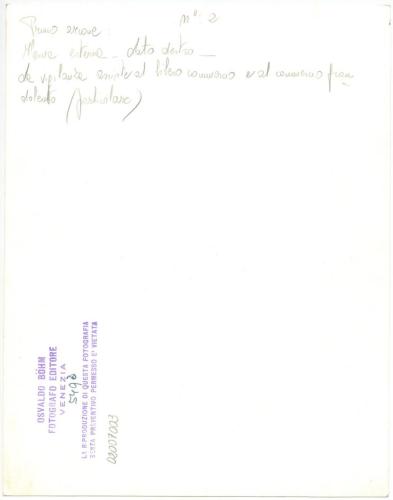 nº: 2
Mensa esterna - lato destro -
La vigilanza assiste al libero commercio e al commercio frau
dolento (particolare)
OSVALDO BÖHM
FOTOGRAFO EDITORE
VENEZIA
5492
LA RIPRODUZIONE DI QUESTA FOTOGRAFIA
SENZA PREVENTIVO PERMESSO E' VIETATA
02007003